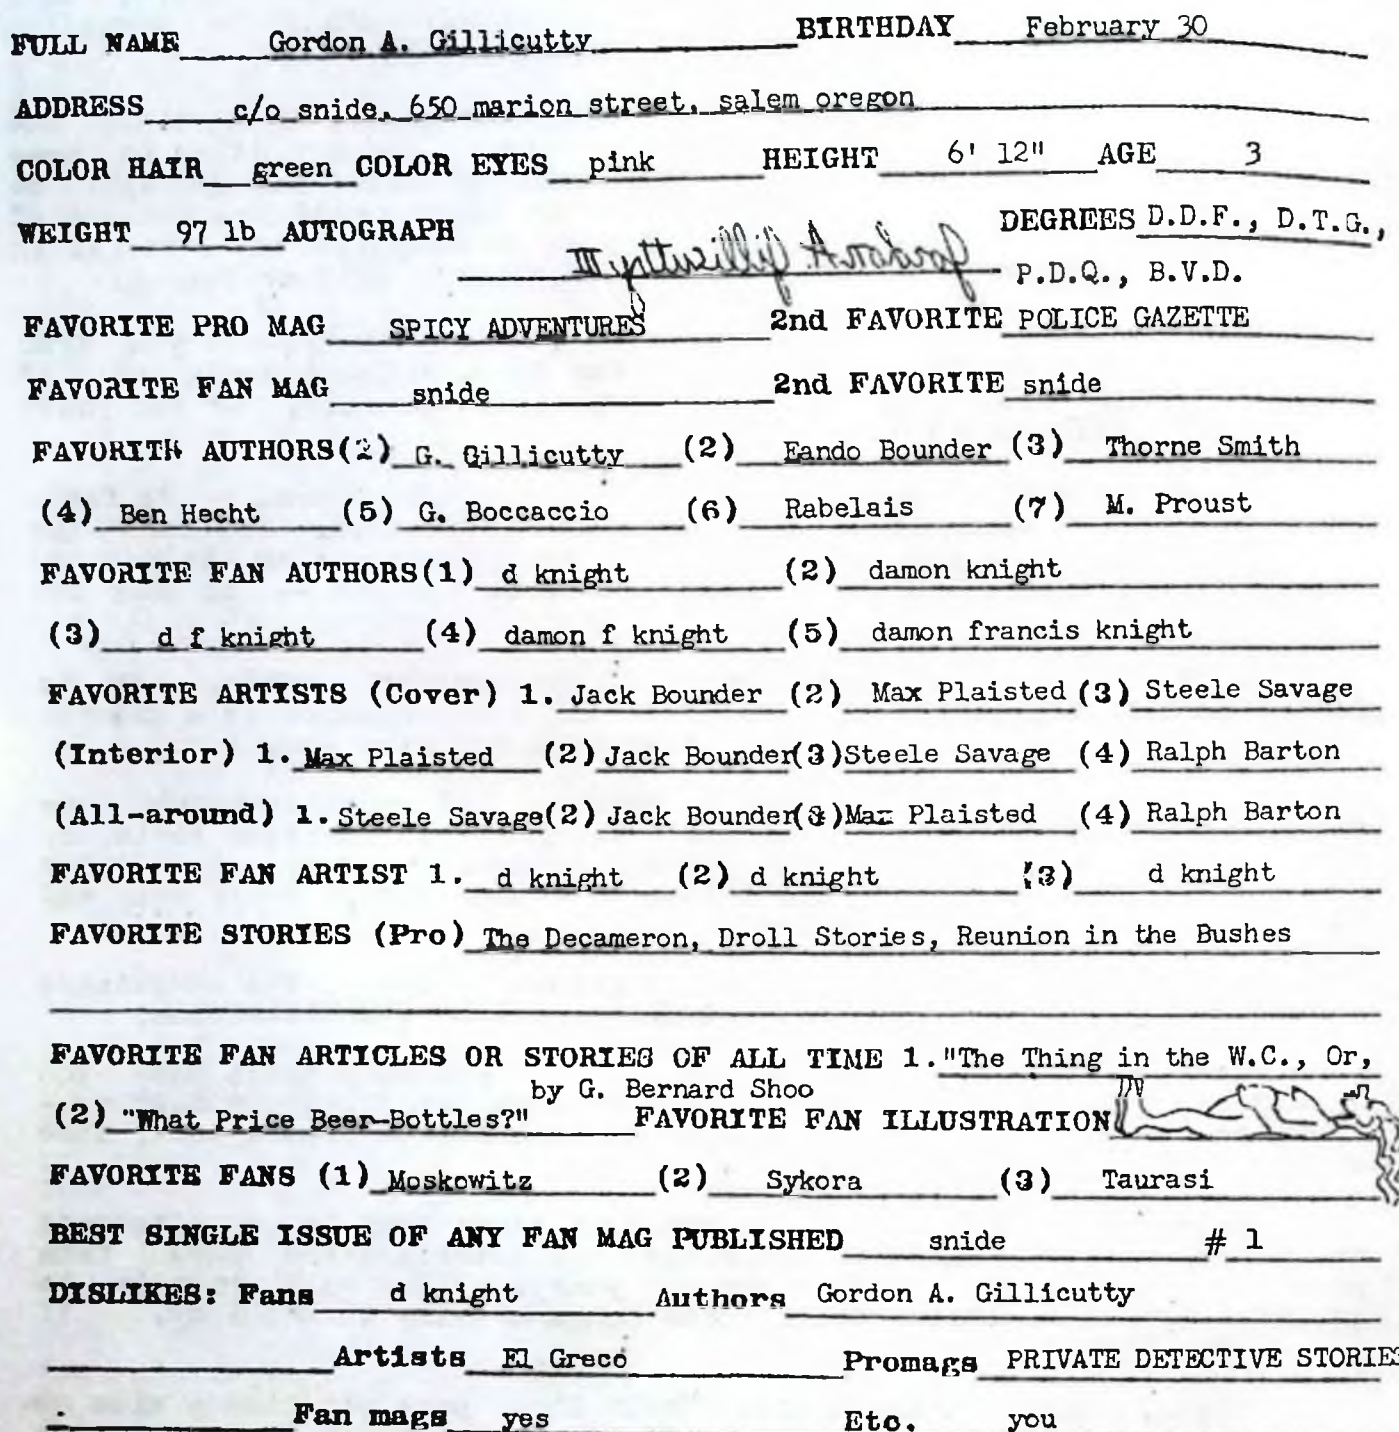 FULL NAME Gordon A. Gillicutty BIRTHDAY February 30
ADDRESS c/o snide, 650 marion street, salem oregon
COLOR HAIR green COLOR EYES pink HEIGHT 6' 12" AGE 3
WEIGHT 97 lb AUTOGRAPH Gordon A. Gillicutty III DEGREES D.D.F., D.T.G.,
P.D.Q., B.V.D.
FAVORITE PRO MAG SPICY ADVENTURES 2nd FAVORITE POLICE GAZETTE
FAVORITE FAN MAG snide 2nd FAVORITE snide
FAVORITE AUTHORS(2) G. Gillicutty (2) Eando Bounder (3) Thorne Smith
(4) Ben Hecht (5) G. Boccaccio (6) Rabelais (7) M. Proust
FAVORITE FAN AUTHORS(1) d knight (2) damon knight
(3) d f knight (4) damon f knight (5) damon francis knight
FAVORITE ARTISTS (Cover) 1. Jack Bounder (2) Max Plaisted (3) Steele Savage
(Interior) 1. Max Plaisted (2) Jack Bounder (3) Steele Savage (4) Ralph Barton
(All-around) 1. Steele Savage (2) Jack Bounder (3) Max Plaisted (4) Ralph Barton
FAVORITE FAN ARTIST 1. d knight (2) d knight (3) d knight
FAVORITE STORIES (Pro) The Decameron, Droll Stories, Reunion in the Bushes
FAVORITE FAN ARTICLES OR STORIES OF ALL TIME 1. "The Thing in the W.C., Or,
by G. Bernard Shoo
(2) "What Price Beer-Bottles?" FAVORITE FAN ILLUSTRATION
FAVORITE FANS (1) Moskowitz (2) Sykora (3) Taurasi
BEST SINGLE ISSUE OF ANY FAN MAG PUBLISHED snide # 1
DISLIKES: Fans d knight Authors Gordon A. Gillicutty
Artists El Greco Promags PRIVATE DETECTIVE STORIES
Fan mags yes Etc. you